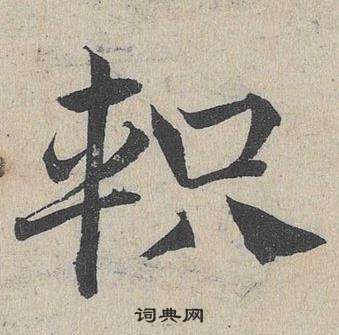 軹
词典网